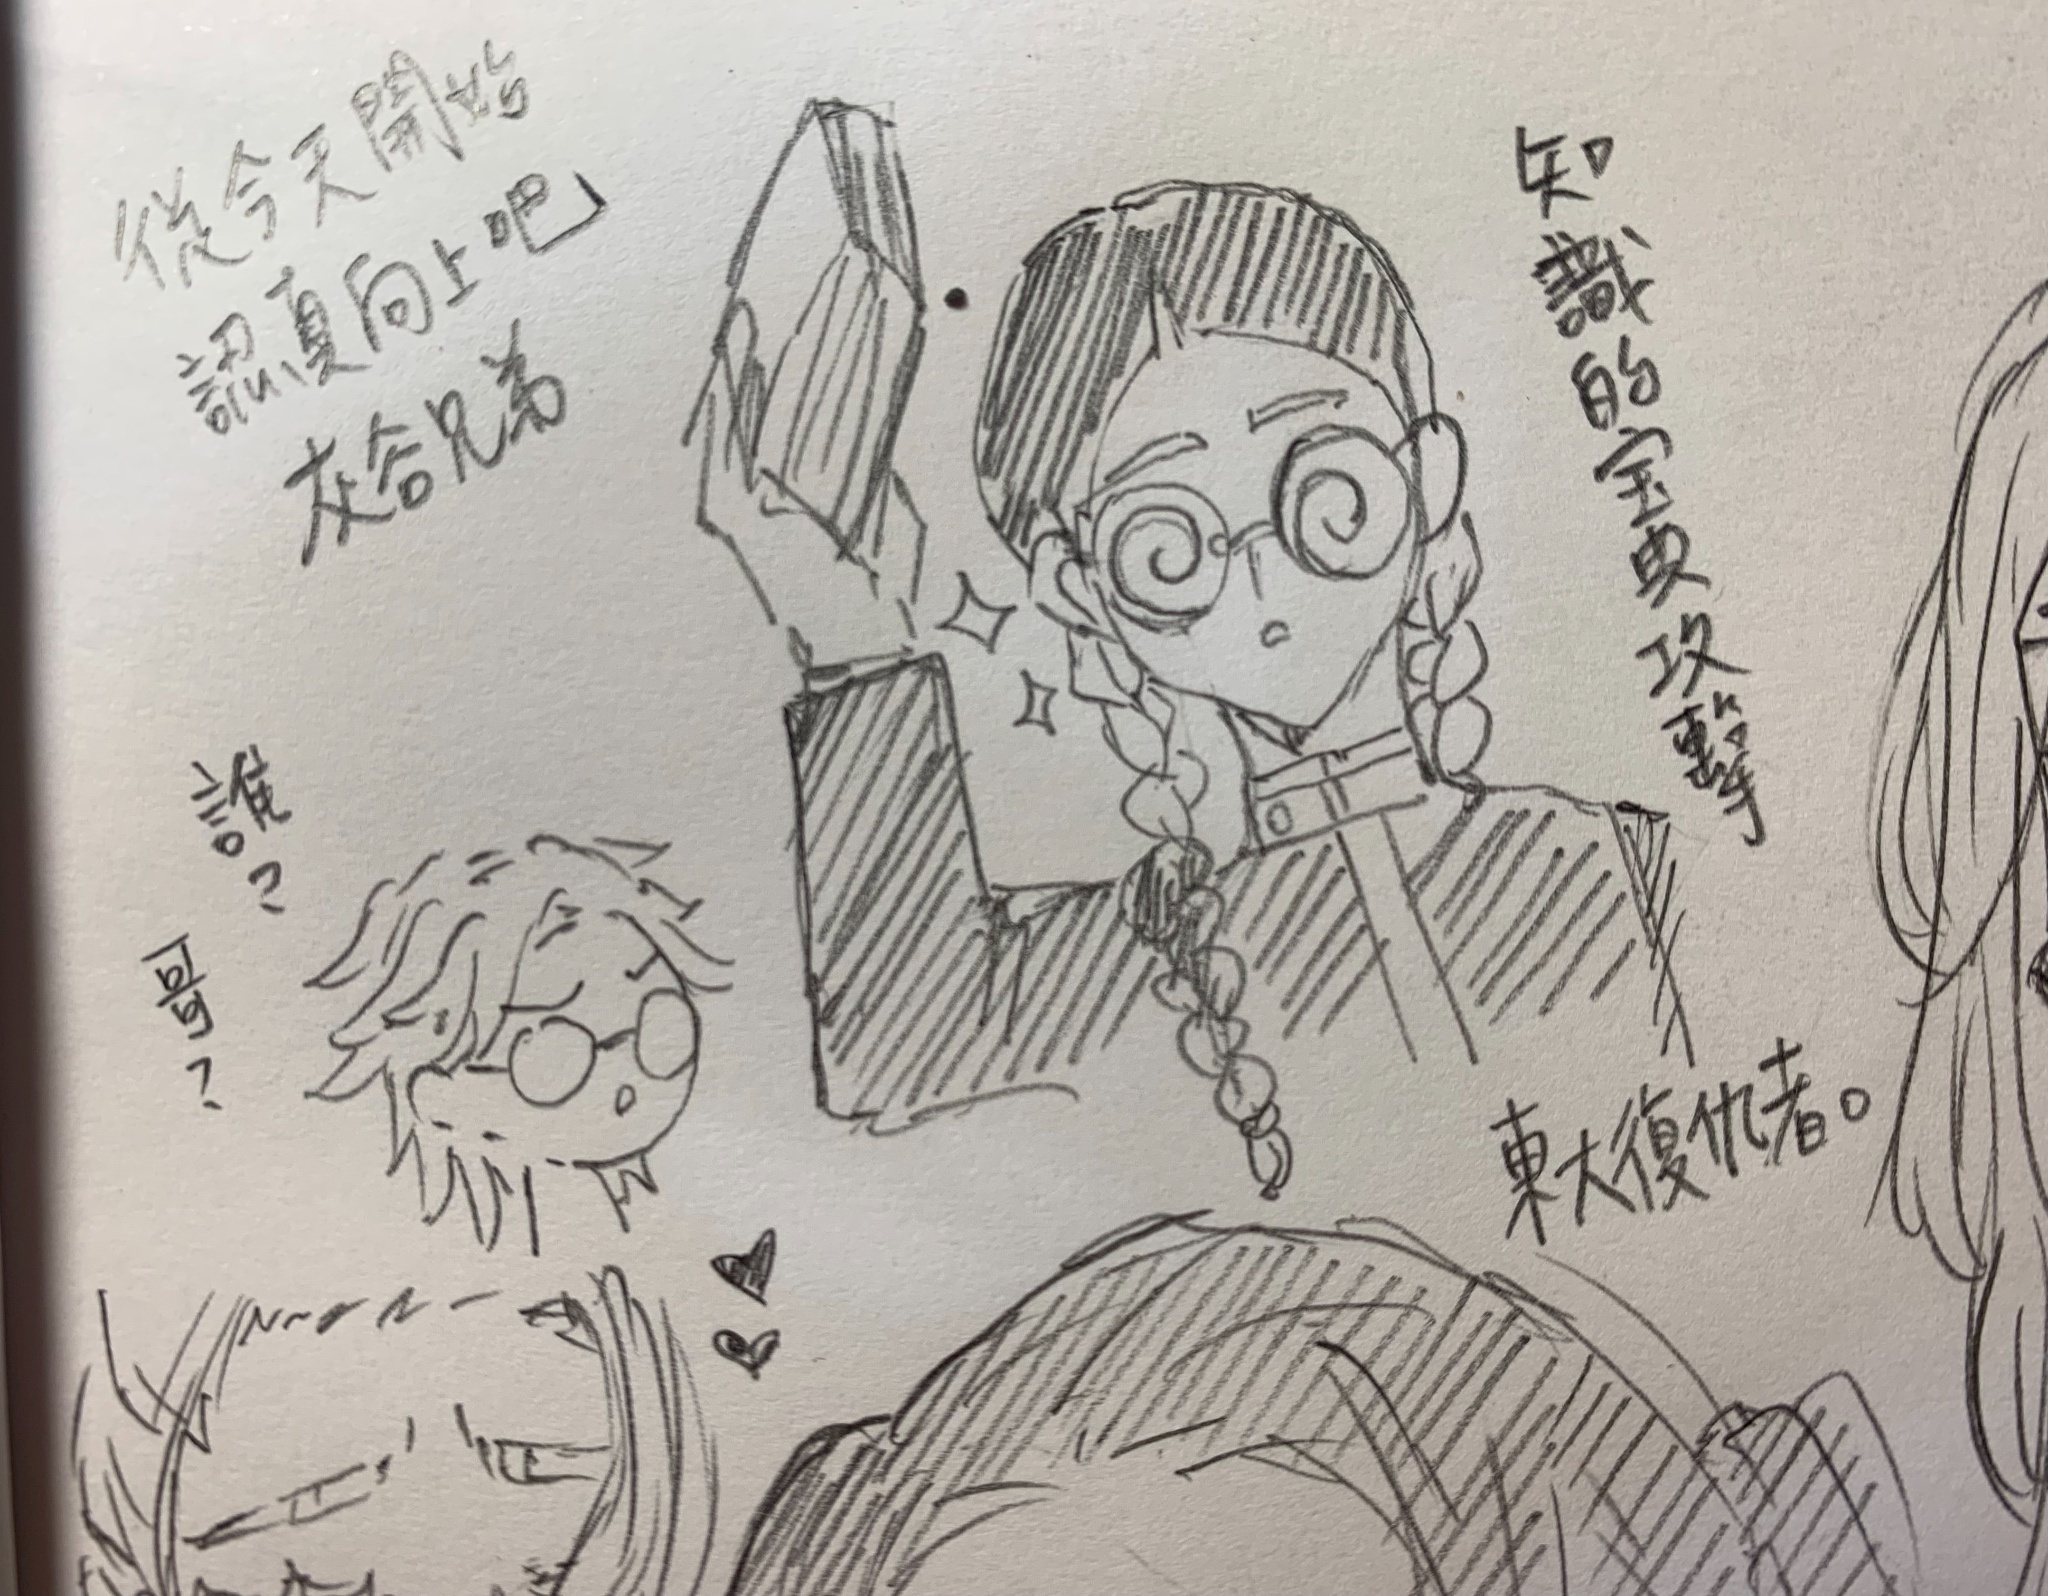 從今天開始
認真向上吧
灰谷兄弟
知識的宝庫攻擊
誰？
哥？
東大復仇者。